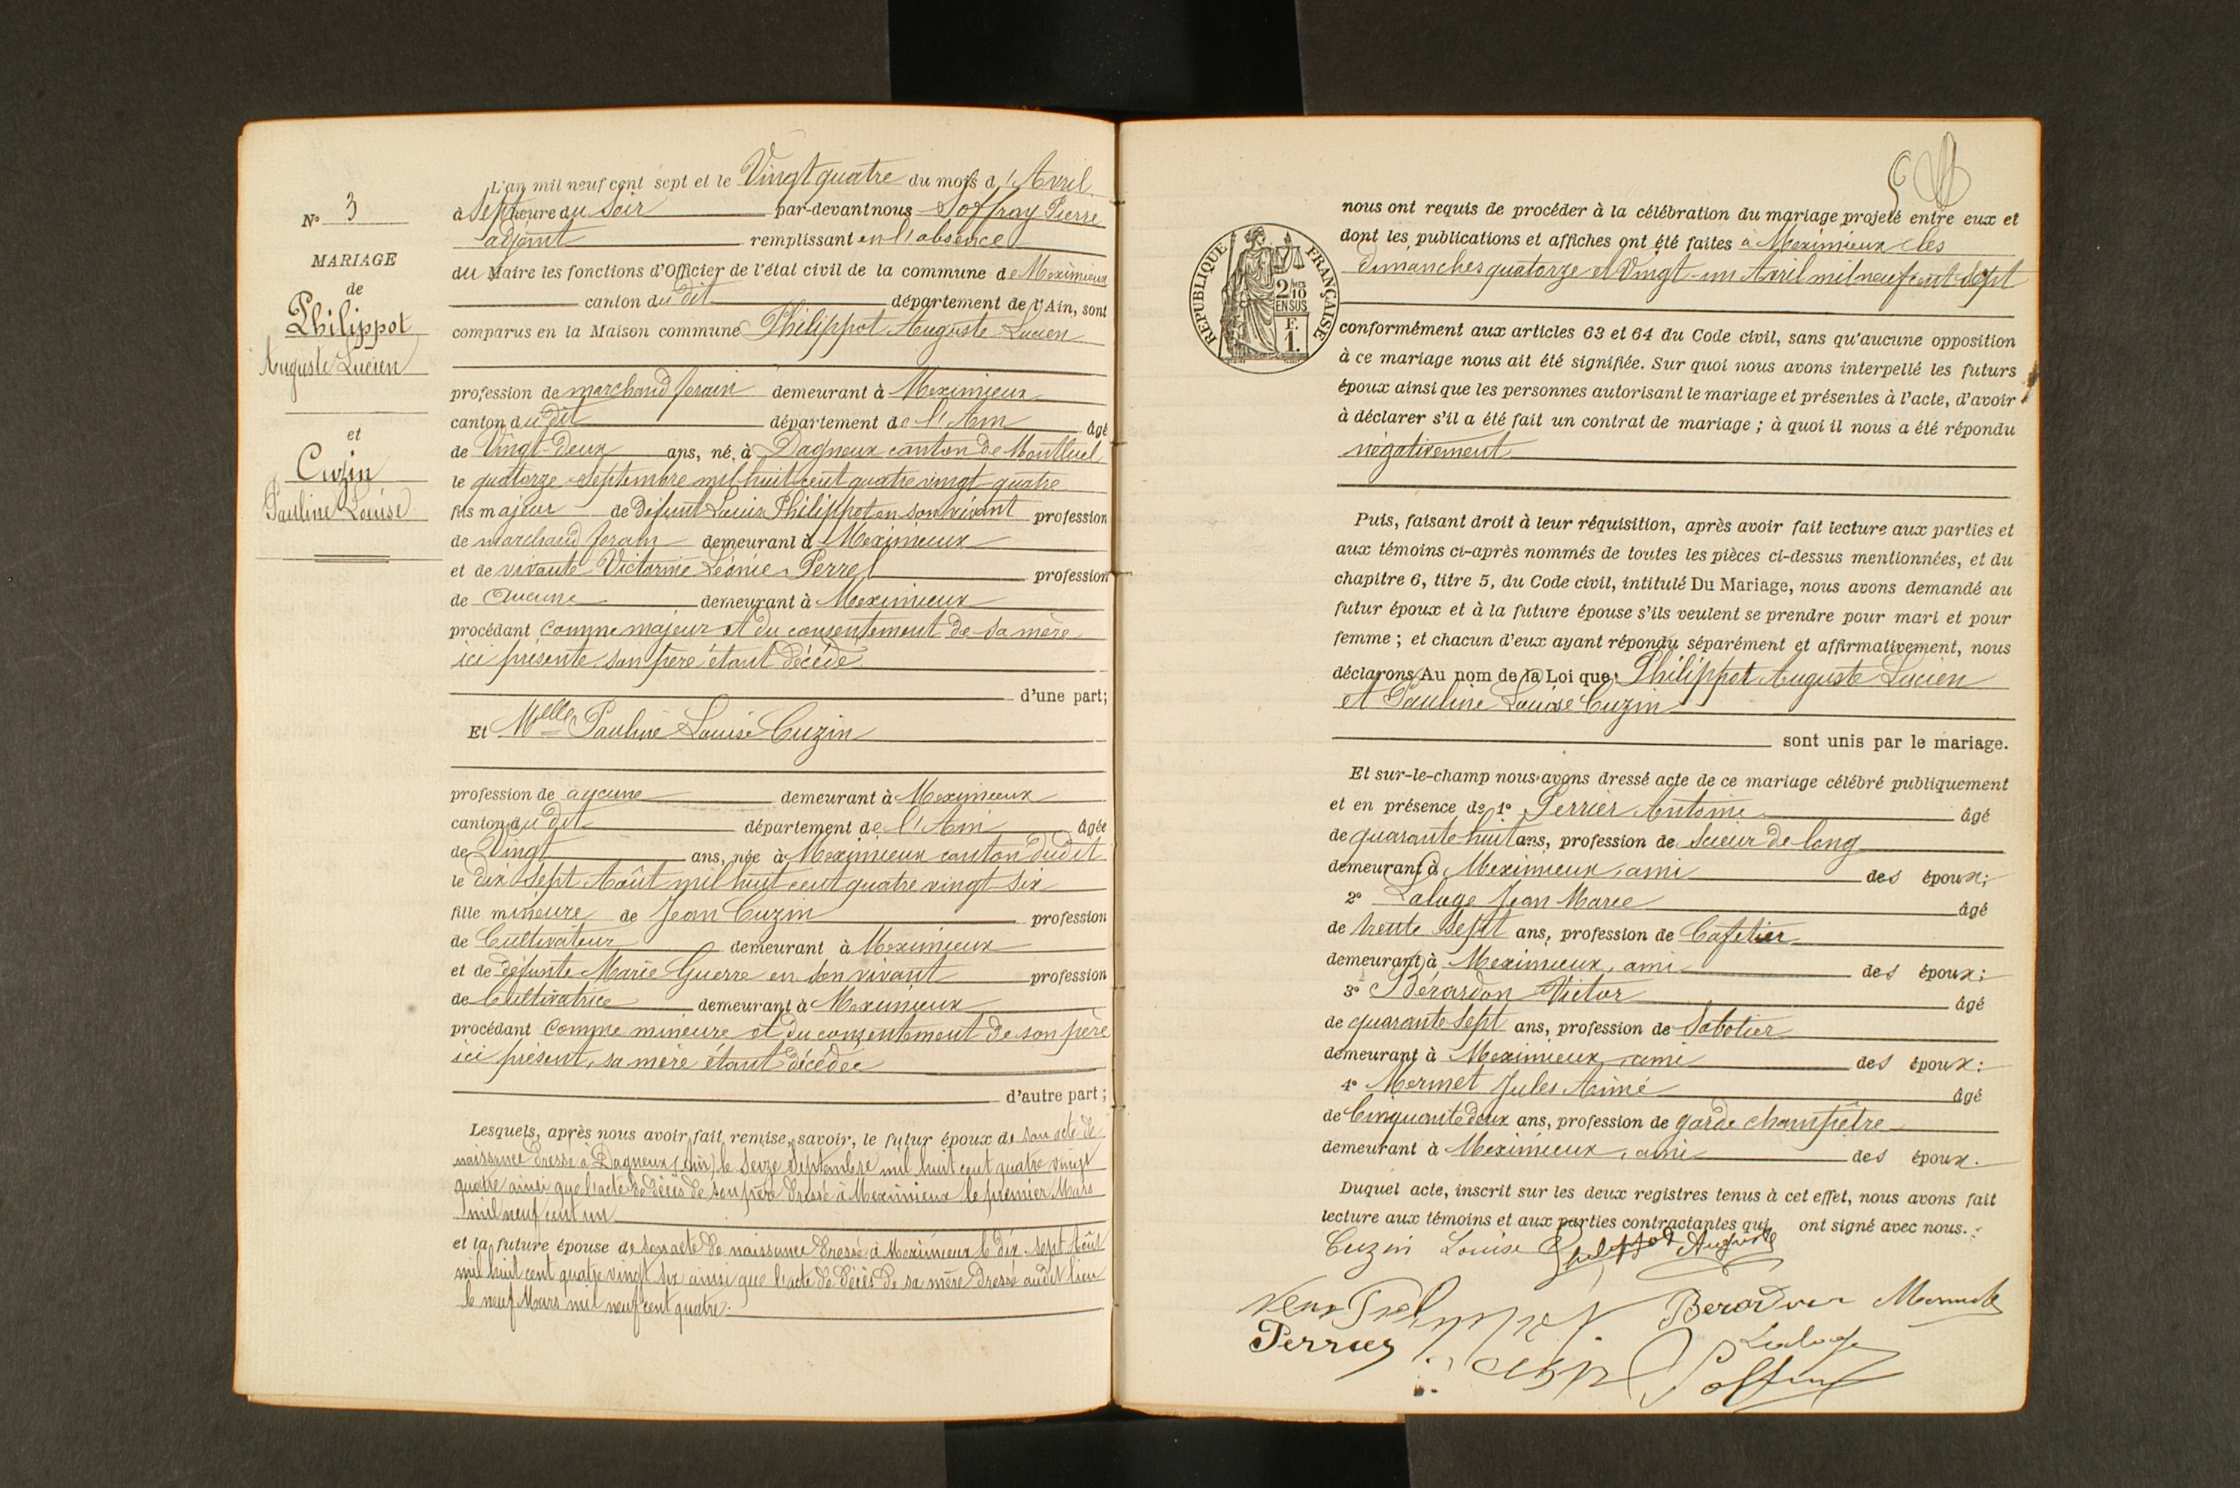 N° 3
MARIAGE
de
Philippot
Auguste Lucien
et
Cuzin
Pauline Louise
L'an mil neuf cent sept et le Vingt quatre du mois d'Avril
à Sept heure du Soir par-devant nous Joffray Pierre
adjoint remplissant en l'absence
du Maire les fonctions d'Officier de l'état civil de la commune de Meximieux
canton du dit département de l'Ain, sont
comparus en la Maison commune Philippot Auguste Lucien
profession de marchand forain demeurant à Meximieux
canton du dit département de l'Ain âgé
de Vingt-deux ans, né à Dagneux canton de Montluel
le quatorze Septembre mil huit cent quatre vingt quatre
fils majeur de défunt Louis Philippot en son vivant profession
de marchand forain demeurant à Meximieux
et de vivante Victorine Léonie Perret profession
de Aucune demeurant à Meximieux
procédant comme majeur et du consentement de sa mère
ici présente son père étant décédé
d'une part;
Et Melle Pauline Louise Cuzin
profession de aucune demeurant à Meximieux
canton du dit département de l'Ain âgée
de Vingt ans, née à Meximieux canton dudit
le dix sept Août mil huit cent quatre vingt six
fille mineure de Jean Cuzin profession
de Cultivateur demeurant à Meximieux
et de défunte Marie Guerre en son vivant profession
de Cultivatrice demeurant à Meximieux
procédant comme mineure et du consentement de son père
ici présent, sa mère étant décédée
d'autre part;
Lesquels, après nous avoir fait remise, savoir, le futur époux de son acte de
naissance dressé à Dagneux (Ain) le Seize Septembre mil huit cent quatre vingt
quatre ainsi que l'acte de décès de son père dressé à Meximieux le premier Mars
mil neuf cent un
et la future épouse de son acte de naissance dressé à Meximieux le dix-sept Août
mil huit cent quatre vingt six ainsi que l'acte de décès de sa mère dressé audit lieu
le neuf Mars mil neuf cent quatre.
RÉPUBLIQUE FRANÇAISE
2/10
EN SUS
F.
1.
nous ont requis de procéder à la célébration du mariage projeté entre eux et
dont les publications et affiches ont été faites à Meximieux les
dimanches quatorze et Vingt-un Avril mil neuf cent Sept
conformément aux articles 63 et 64 du Code civil, sans qu'aucune opposition
à ce mariage nous ait été signifiée. Sur quoi nous avons interpellé les futurs
époux ainsi que les personnes autorisant le mariage et présentes à l'acte, d'avoir
à déclarer s'il a été fait un contrat de mariage ; à quoi il nous a été répondu
négativement
Puis, faisant droit à leur réquisition, après avoir fait lecture aux parties et
aux témoins ci-après nommés de toutes les pièces ci-dessus mentionnées, et du
chapitre 6, titre 5, du Code civil, intitulé Du Mariage, nous avons demandé au
futur époux et à la future épouse s'ils veulent se prendre pour mari et pour
femme ; et chacun d'eux ayant répondu séparément et affirmativement, nous
déclarons Au nom de la Loi que Philippot Auguste Lucien
et Pauline Louise Cuzin
sont unis par le mariage.
Et sur-le-champ nous avons dressé acte de ce mariage célébré publiquement
et en présence de 1° Perrier Antoine âgé
de quarante huit ans, profession de Scieur de long
demeurant à Meximieux, ami des époux;
2° Laluge Jean Marie âgé
de trente Sept ans, profession de Cafetier
demeurant à Meximieux, ami des époux;
3° Bérardon Victor âgé
de quarante Sept ans, profession de Sabotier
demeurant à Meximieux, ami des époux;
4° Mermet Jules Aimé âgé
de Cinquante deux ans, profession de garde champêtre
demeurant à Meximieux, ami des époux.
Duquel acte, inscrit sur les deux registres tenus à cet effet, nous avons fait
lecture aux témoins et aux parties contractantes qui ont signé avec nous.
Cuzin Louise Philippot Auguste
Berardon Mermet
Perrier